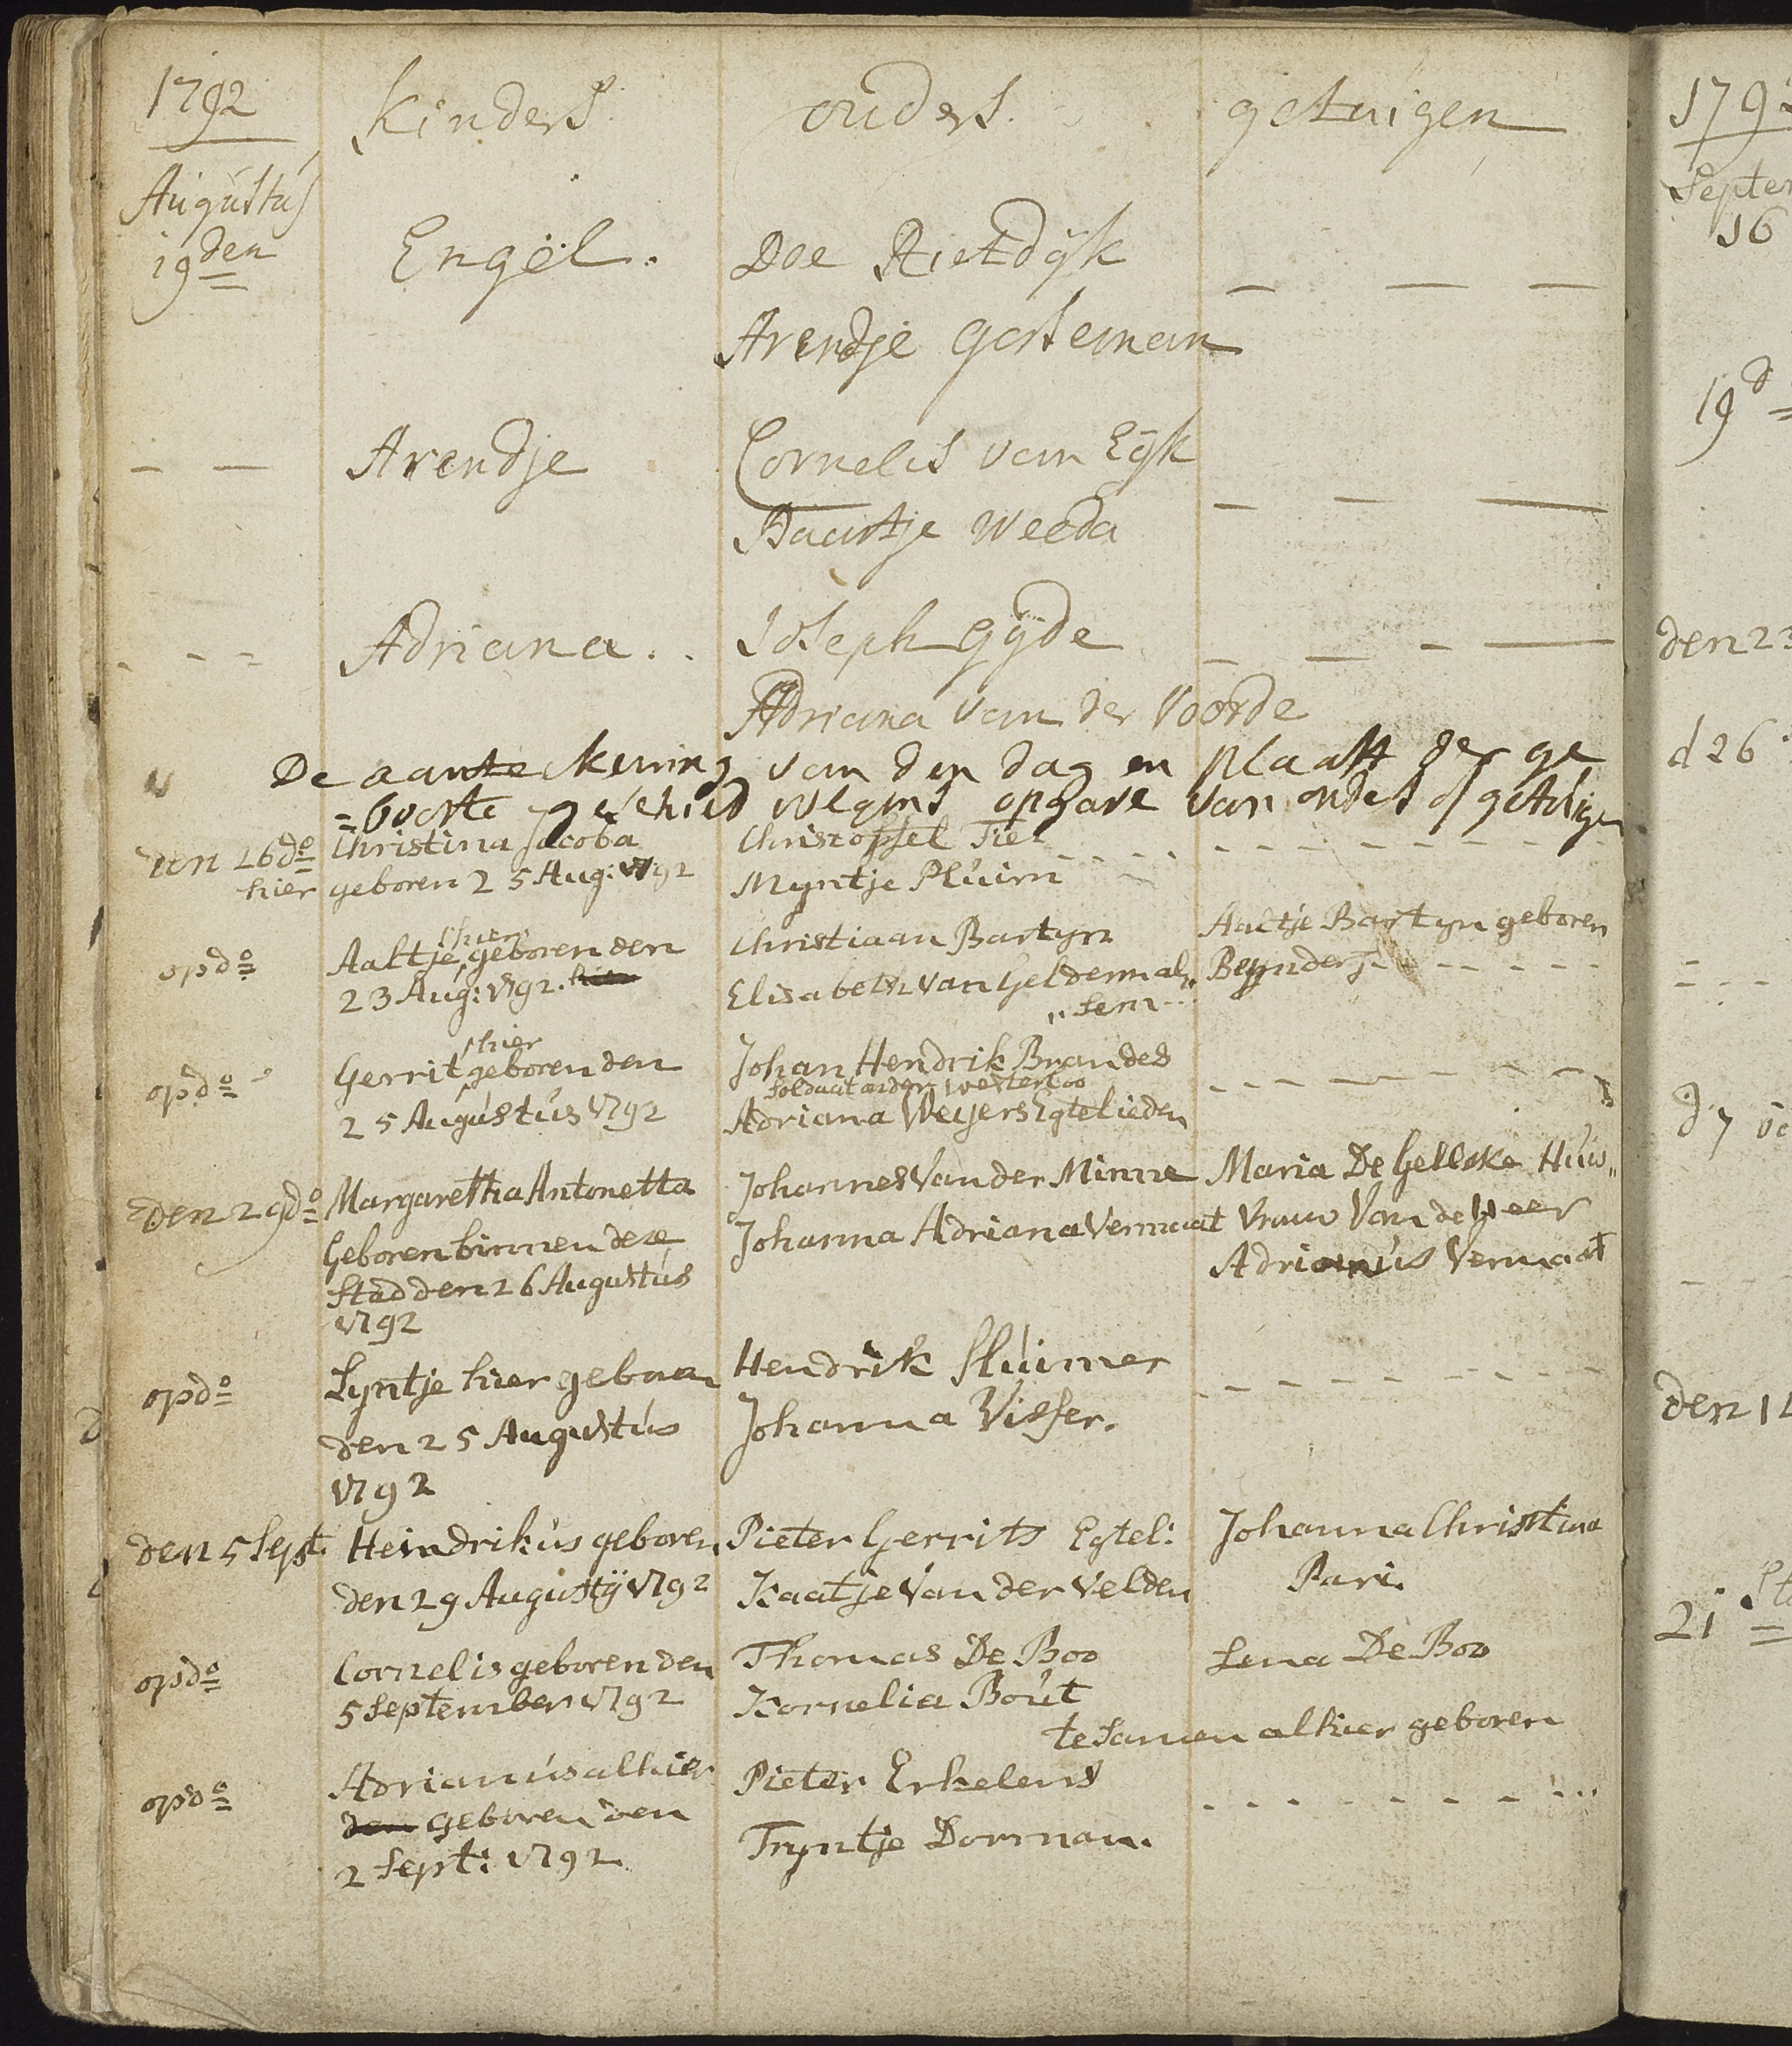 1792 Kinders ouders. getuigen
Augustus
19den Engel. Doe Rietdÿk
Arendje Gosteman
Arendje Cornelis van Eÿk
Baartje Weeda
Adriana Joseph Gÿde
Adriana van der Voorde
De aantekening van den dag en plaats der ge
=boorte geschied volgens opgave van ouders of getuigen
den 26do Christina Jacoba Christoffel Tiel
hier geboren 25 Aug: 1792 Myntje Pluim
opdo Aaltje hier geboren den Christiaan Bartyn Aaltje Bartyn geboren
23 Aug: 1792. hier Elisabeth van Geldermal„ Reynders
„sem
opdo Gerrit hier geboren den Johan Hendrik Brandes
soldaat onder Westerloo
25 Augustus 1792 Adriana Weyers Egtelieden
Den 29do Margaretha Antonetta Johannes Van der Minne Maria De Gelleke Huis„
Geboren binnen deze Johanna Adriana Vermaat Vrouw Van de Weer
Stad den 26 Augustus Adrianus Vermaat
1792
opdo Lyntje hier geboren Hendrik Sluimer
den 25 Augustus Johanna Visser.
1792
den 5 Sept. Heindrikus geboren Pieter Gerrits Egtel: Johanna Christina
den 29 Augustÿ 1792 Kaatje Van der Velden Pari.
opdo Cornelis geboren den Thomas De Boo Lena De Boo
5 September 1792 Kornelia Bout
te samen alhier geboren
opdo Adrianus alhier Pieter Erkelens
den geboren den Tryntje Dorman.
2 Sept: 1792
1792
Septem
16
19d
den 23
d 26
d 7
den 1
21